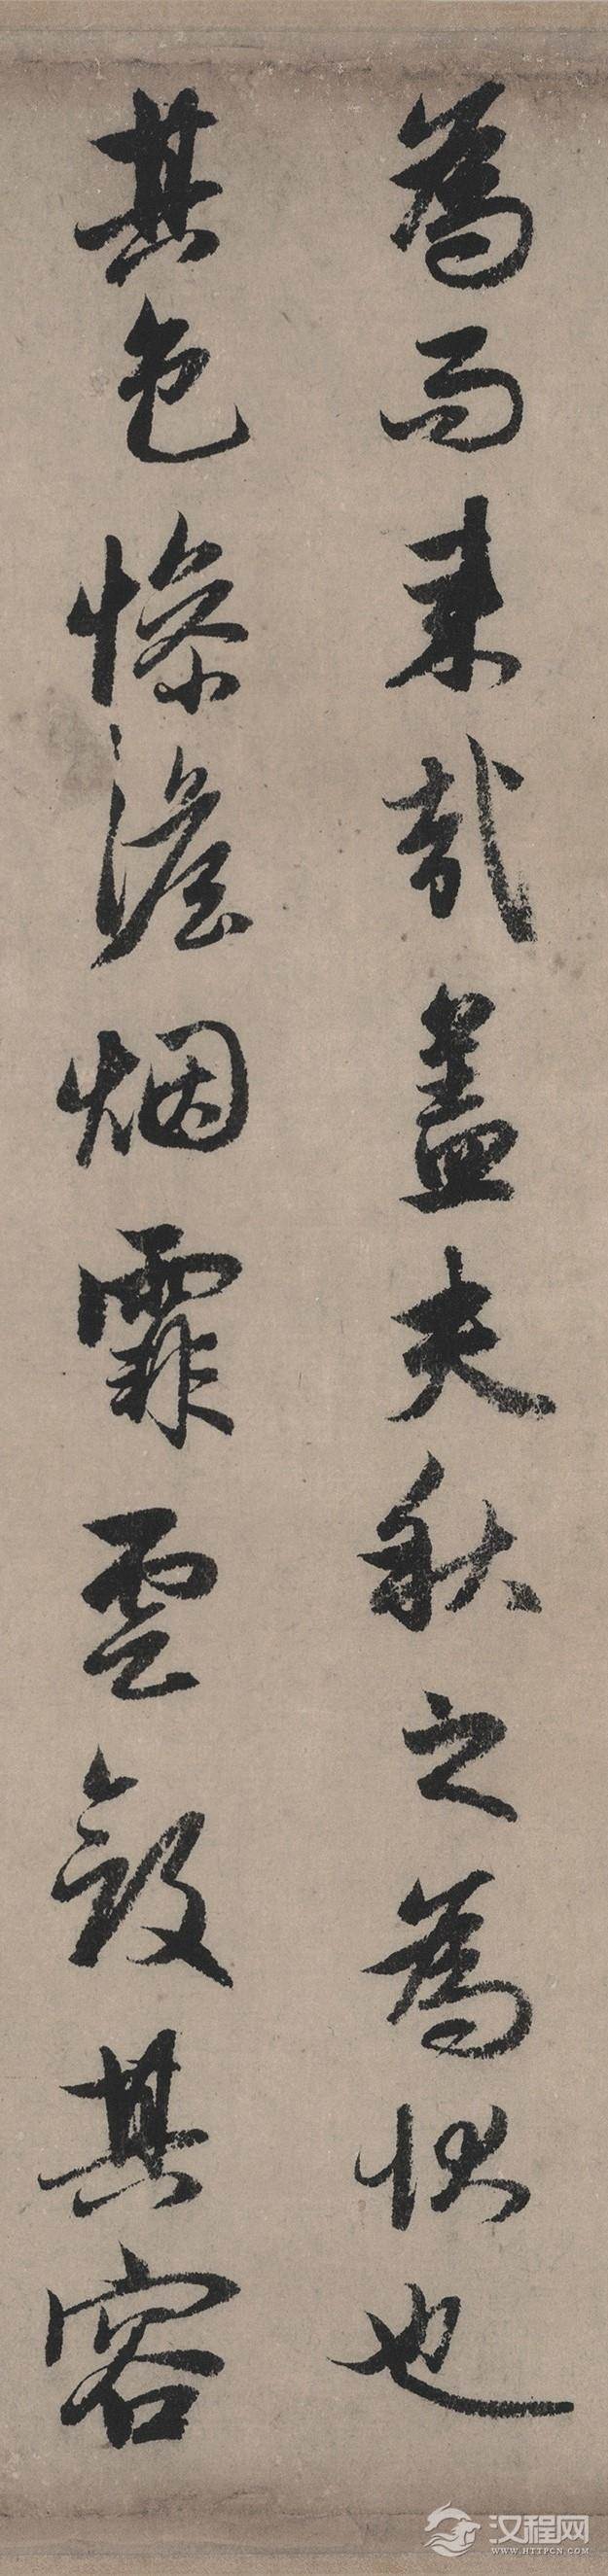 為而来哉盖夫秋之為状也
其色惨澹烟霏雲斂其容
汉程网
WWW.HTTPCN.COM